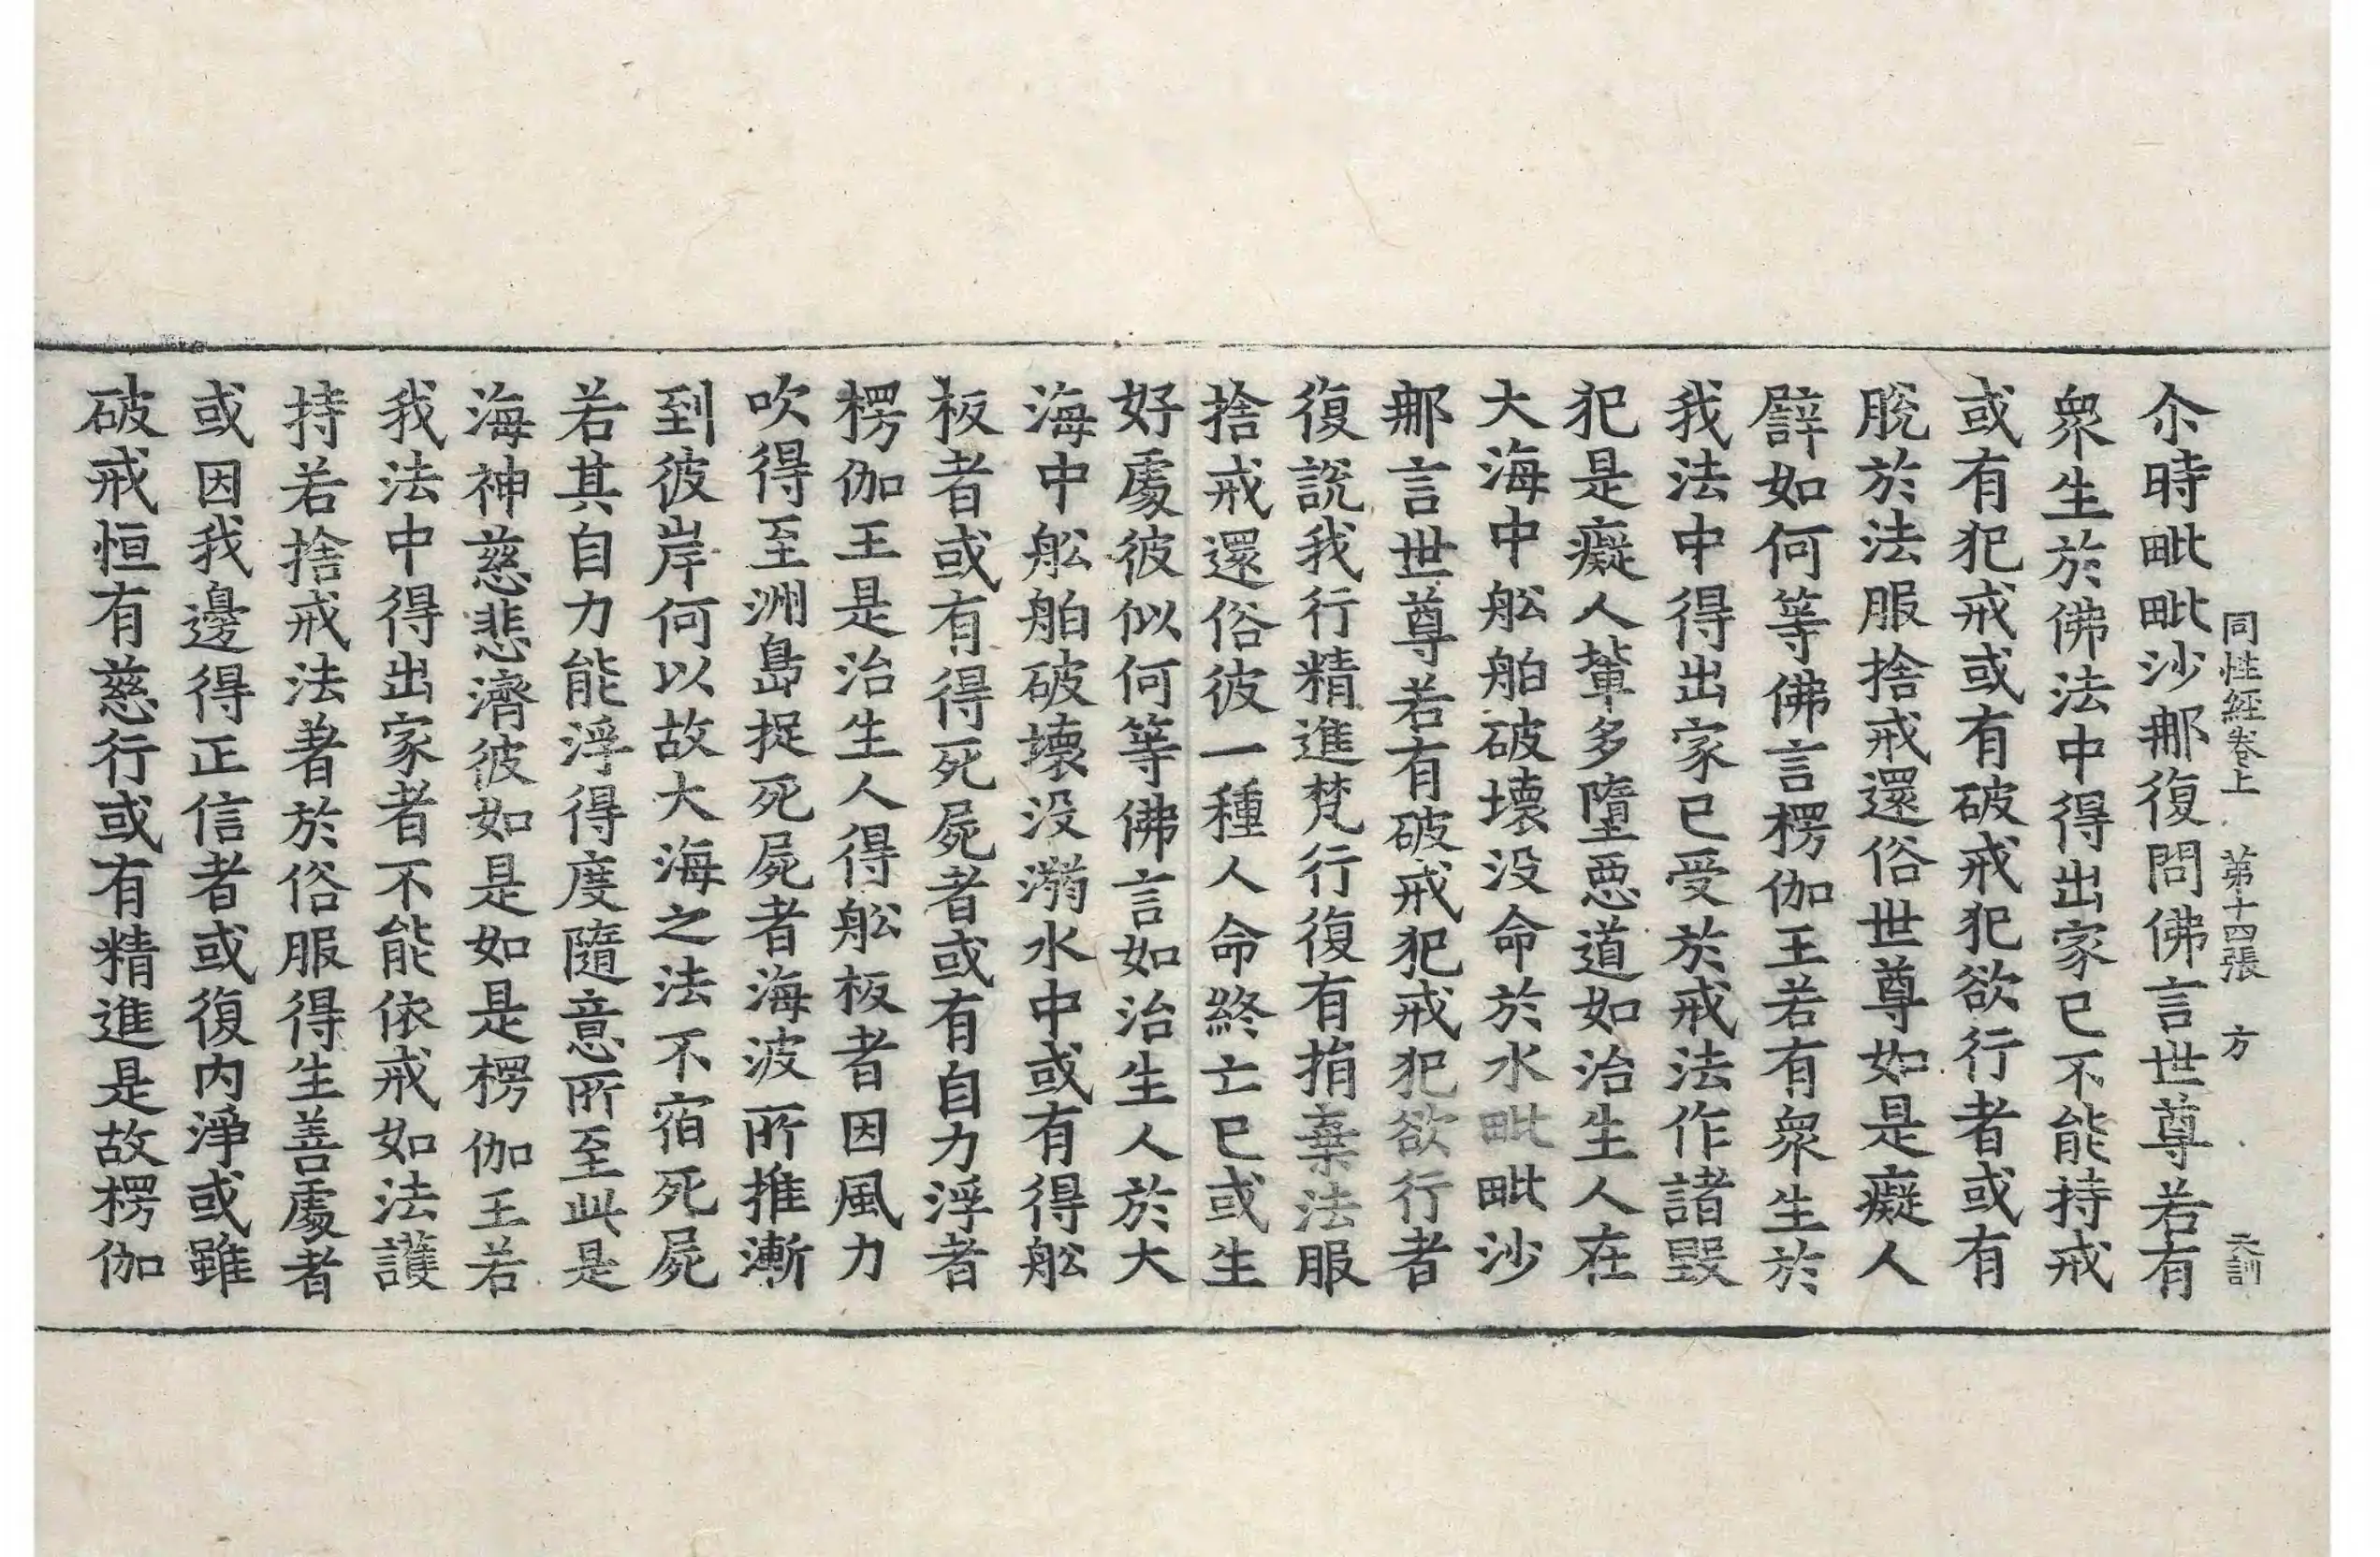 同性經卷上 第十四張 方 天訓
尒時毗毗沙那復問佛言世尊若有
衆生於佛法中得出家已不能持戒
或有犯戒或有破戒犯欲行者或有
脫於法服捨戒還俗世尊如是癡人
譬如何等佛言楞伽王若有衆生於
我法中得出家已受於戒法作諸毀
犯是癡人輩多墮惡道如治生人在
大海中舩舶破壞没命於水毗毗沙
那言世尊若有破戒犯戒犯欲行者
復說我行精進梵行復有捐棄法服
捨戒還俗彼一種人命終亡已或生
好處彼似何等佛言如治生人於大
海中舩舶破壞没溺水中或有得舩
板者或有得死屍者或有自力浮者
楞伽王是治生人得舩板者因風力
吹得至洲島捉死屍者海波所推漸
到彼岸何以故大海之法不宿死屍
若其自力能浮得度隨意所至此是
海神慈悲濟彼如是如是楞伽王若
我法中得出家者不能依戒如法護
持若捨戒法著於俗服得生善處者
或因我邊得正信者或復内淨或雖
破戒恒有慈行或有精進是故楞伽